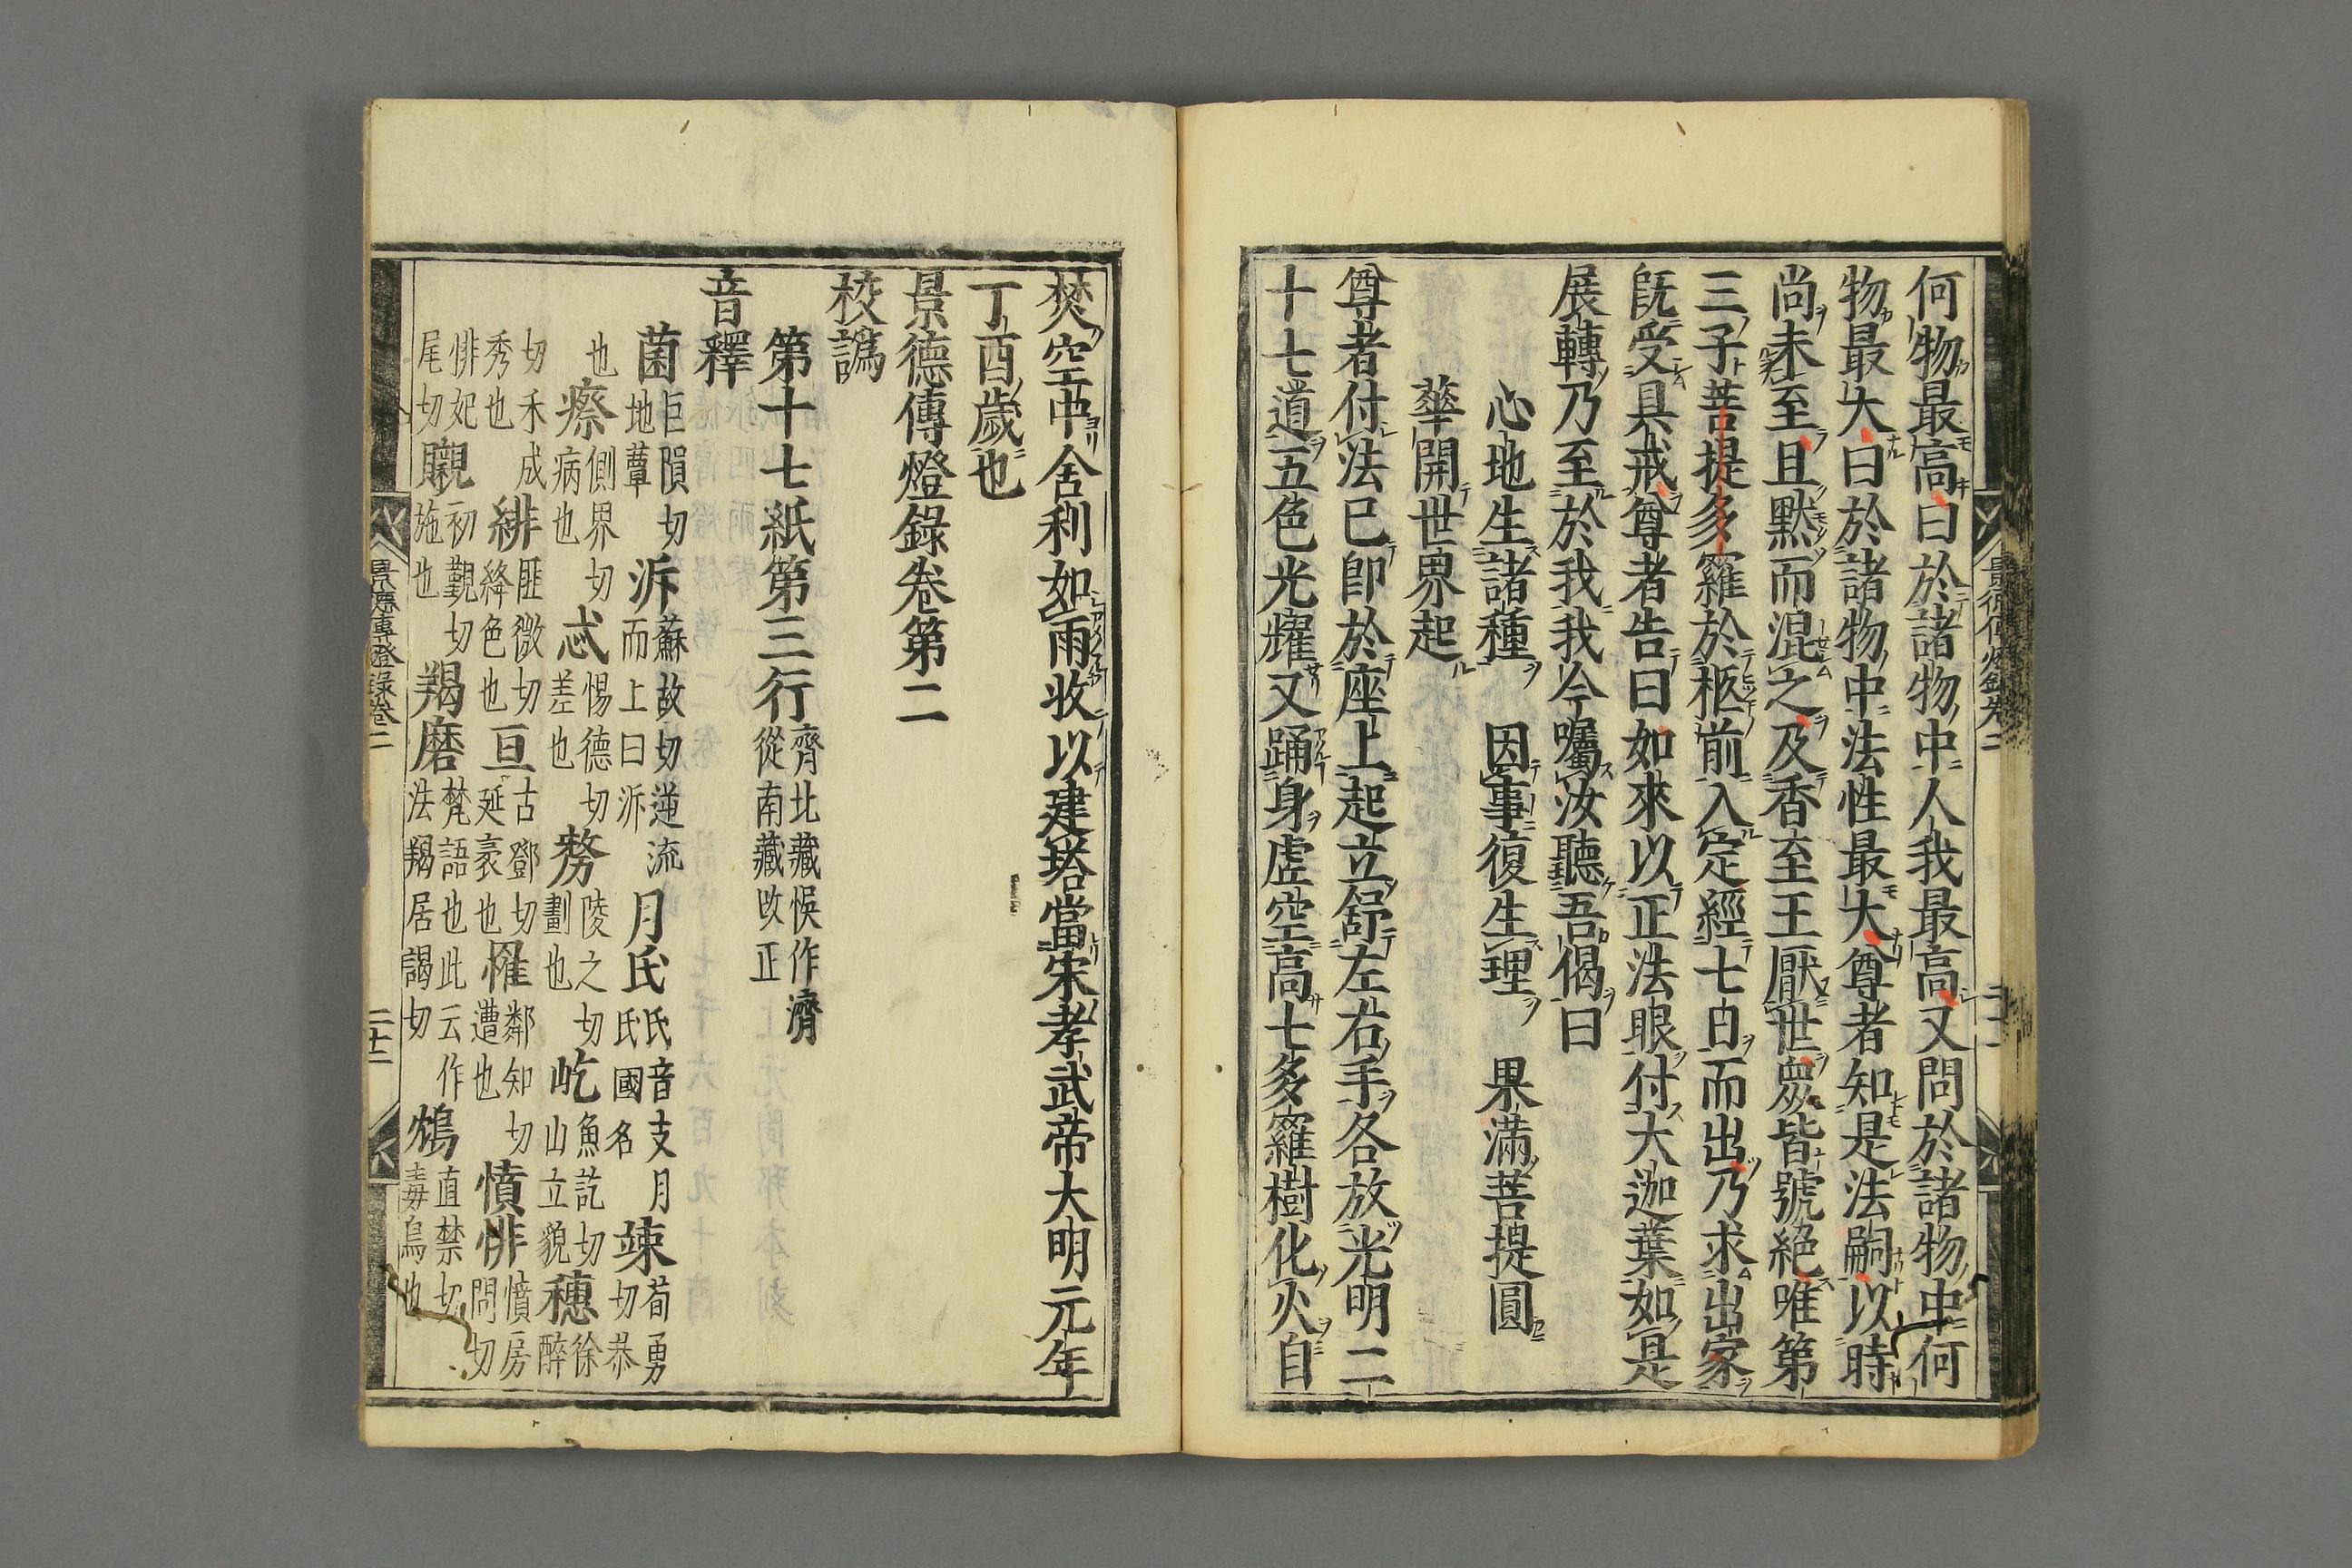 何物最高曰於諸物中人我最高又問於諸物中何
物最大曰於諸物中法性最大尊者知是法嗣以時
尚未至且默而混之及香至王厭世衆皆號絕唯第
三子菩提多羅於柩前入定經七日而出乃求出家
既受具戒尊者告曰如來以正法眼付大迦葉如是
展轉乃至於我我今囑汝聽吾偈曰
心地生諸種 因事復生理 果滿菩提圓
華開世界起
尊者付法已即於座上起立舒左右手各放光明二
十七道五色光耀又踊身虛空高七多羅樹化火自
焚空中舍利如雨收以建塔當宋孝武帝大明元年
丁酉歲也
景德傳燈錄卷第二
校譌
第十七紙第三行 濟北藏悞作濟 從南藏改正
音釋
菌 巨隕切地蕈也 泝 蘇故切逆流而上曰泝 月氏 氏音支月氏國名 竦 荀勇切恭
也 瘵 側界切病也 忒 惕德切差也 剺 陵之切劃也 屹 魚訖切山立貌 穗 徐醉
切禾成秀也 緋 匪微切絳色也 亘 古鄧切延袤也 罹 鄰知切遭也 憤悱 憤房問切
悱妃尾切 覸 初覲切施也 羯磨 梵語也此云作法羯居謁切 鴆 直禁切毒鳥也
景德傳燈錄卷二
二十二